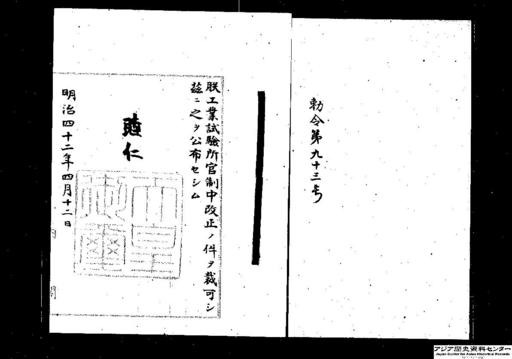 勅令第九十三号
朕工業試驗所官制中改正ノ件ヲ裁可シ
茲ニ之ヲ公布セシム
睦仁
天皇御璽
明治四十二年四月十二日
アジア歴史資料センター
Japan Center for Asian Historical Records